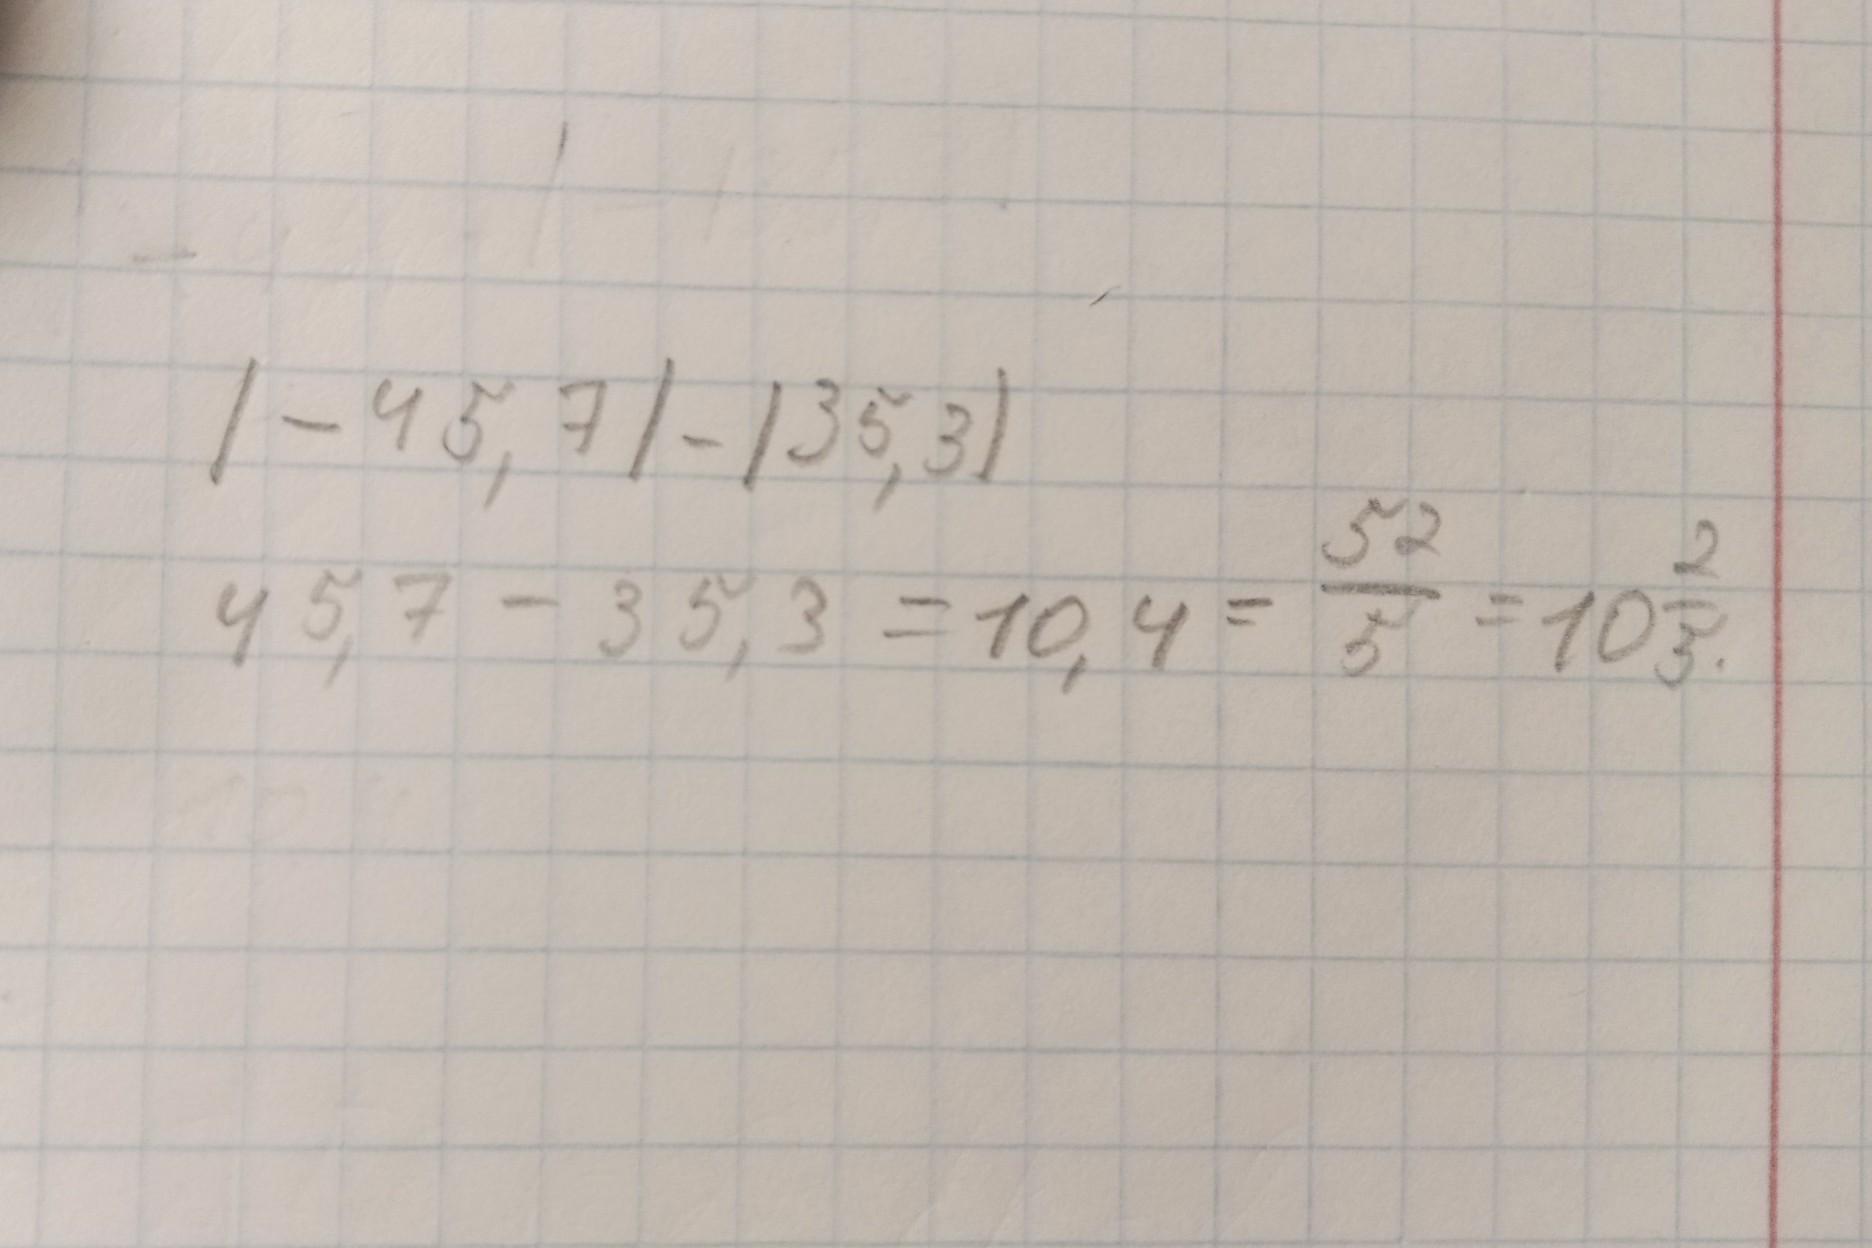 |-45,7|-|35,3|
45,7-35,3=10,4=52/5=10 2/5.